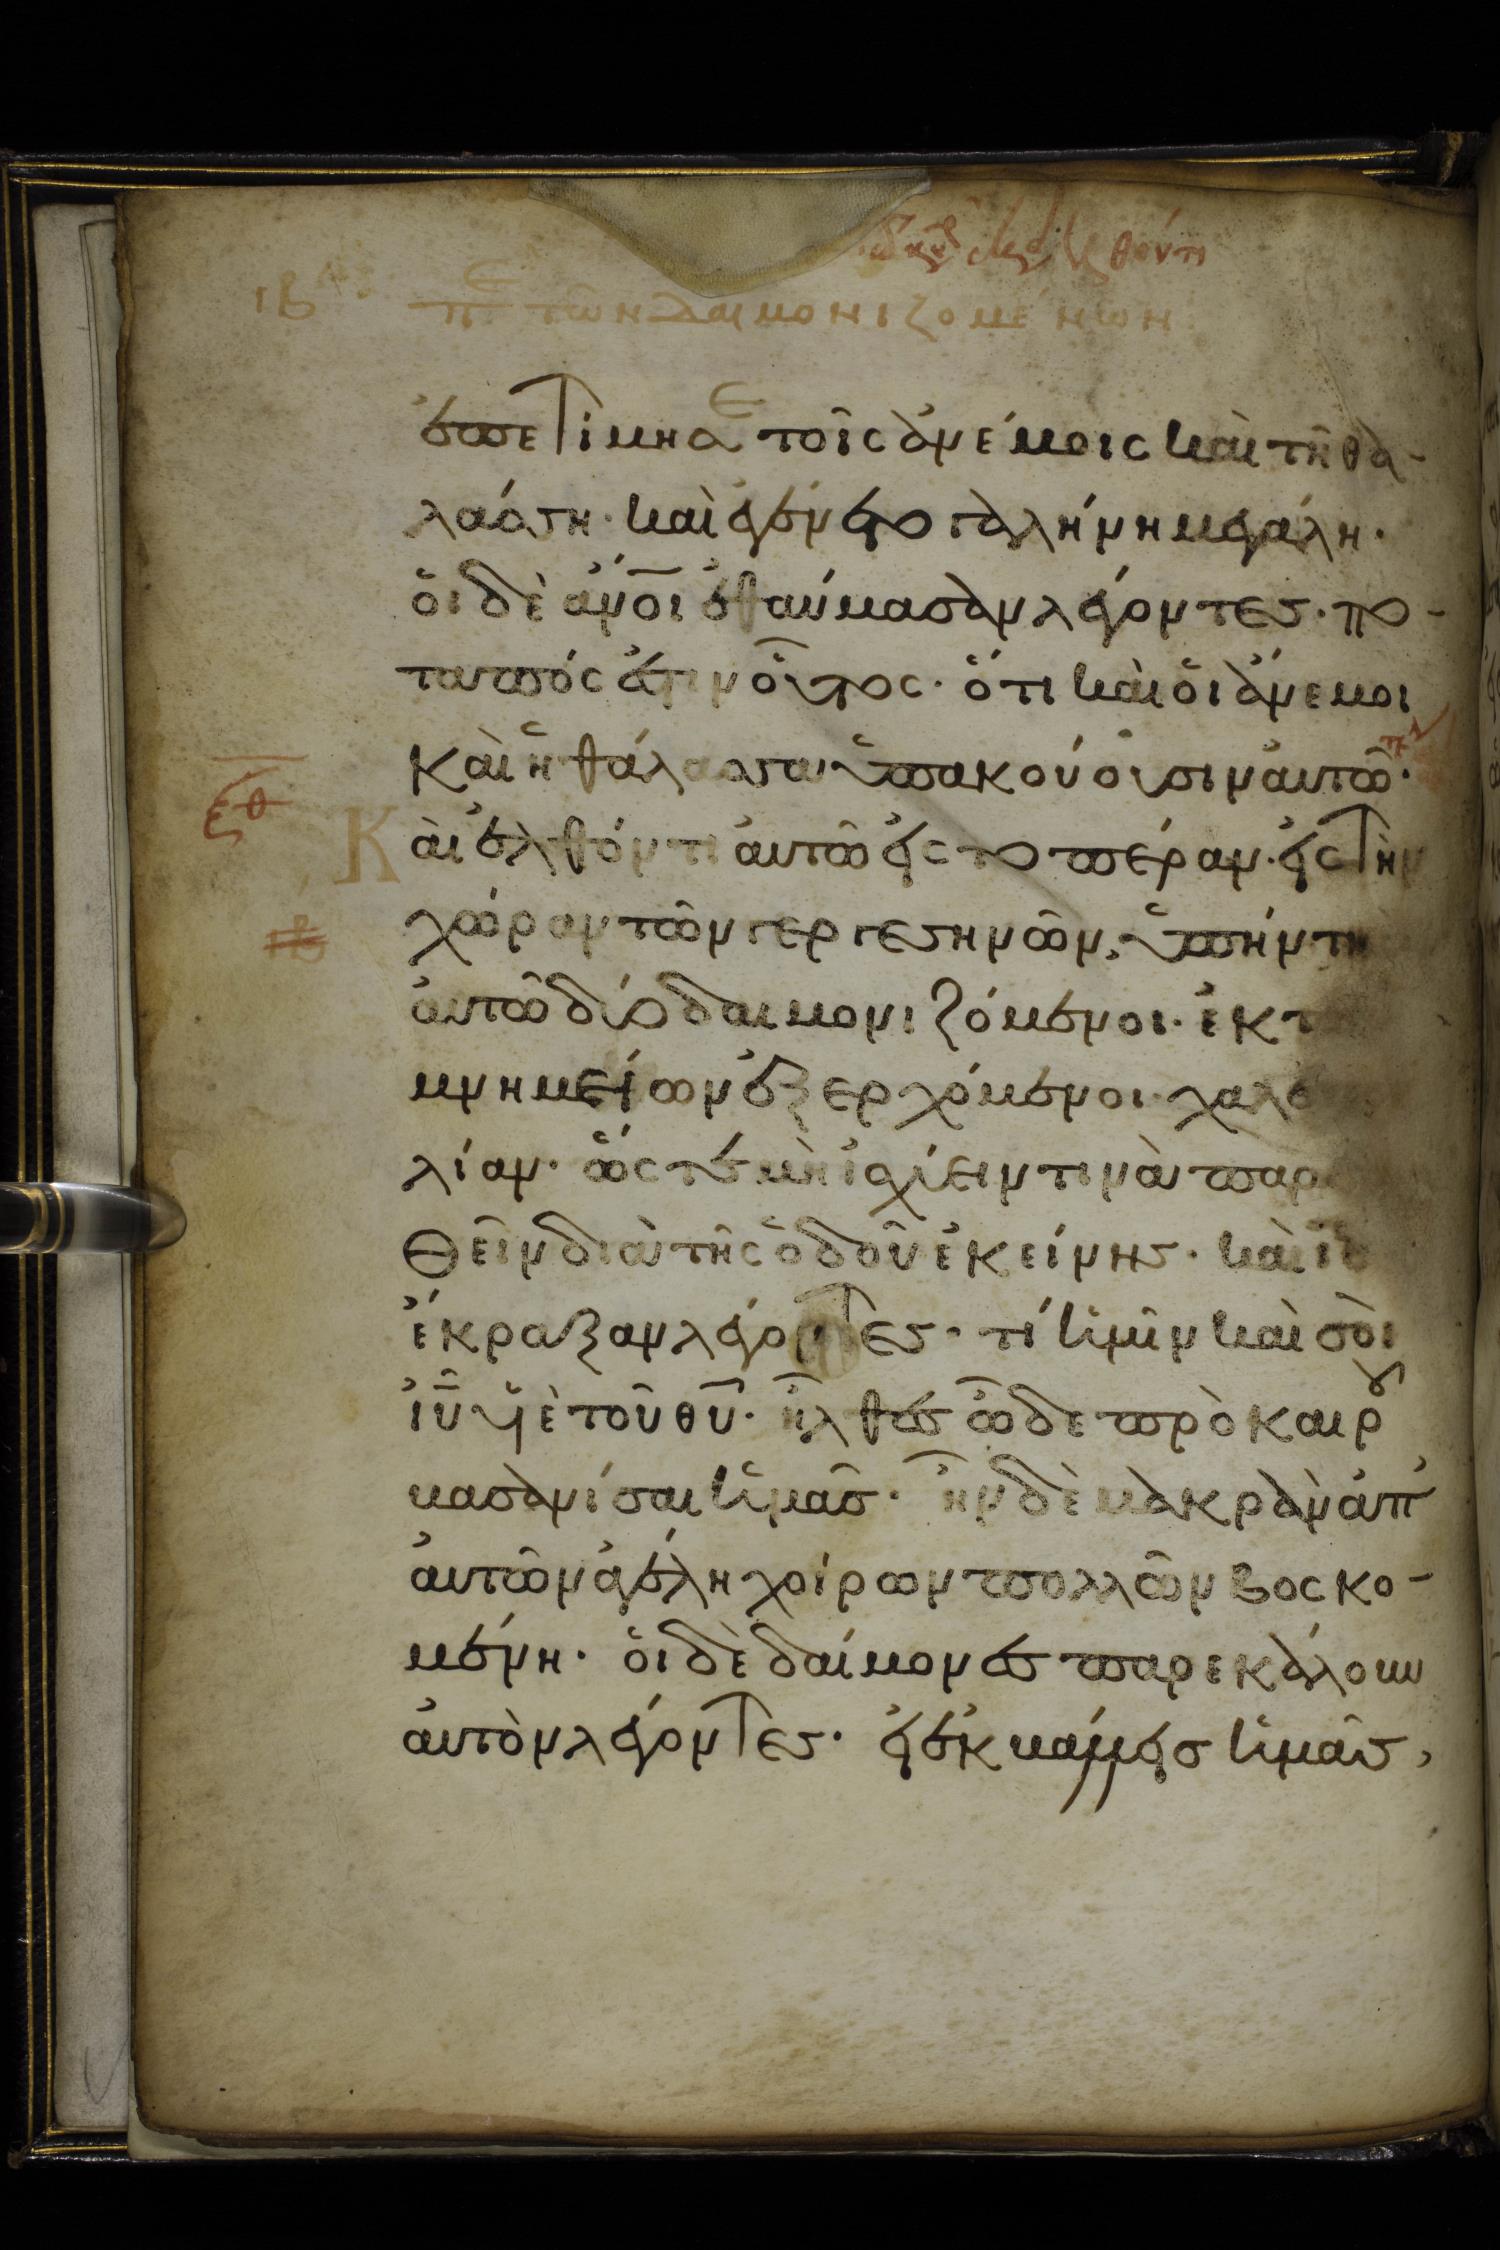 ιβ π̅ε τῶν δαιμονιζομένων
ἐπετίμησε τοῖς ἀνέμοις καὶ τῇ θα-
λάσση· καὶ ἐγένετο γαλήνη μεγάλη·
ὁι δὲ ἀν̅οι ἐθαύμασαν λέγοντες· πο-
ταπός ἐστιν οὗτος· ὅτι καὶ ὁι ἄνεμοι
καὶ ἡ θάλασσα ὑπακούουσιν αὐτῶ·
ξθ Καὶ ἐλθόντι αὐτῶ εἰς το πέραν· εἰς τὴν
χώραν τῶν γεργεσηνῶν, ὑπήντη
αὐτῶ δύο δαιμονιζόμενοι· ἐκ τ
μνημείων ἐξερχόμενοι· χαλε
λίαν· ὥςτε μὴ ἰσχύειν τινὰ παρ
θεῖν διὰ τῆς ὁδοῦ ἐκείνης· καὶ ἰδ
ἔκραξαν λέγοντες· τί ἡμῖν καὶ σὸι
ἰ̅υ̅ υἱὲ τοῦ θ̅υ̅· ἦλθες ὧδε πρὸ καιροῦ
βασανίσαι ἡμᾶς· ἦν δὲ μακρὰν ἀπ
αὐτῶν ἀγέλη χοίρων πολλῶν βοςκο-
μένη· ὁι δὲ δαίμονες παρεκάλουν
αὐτὸν λέγοντες· εἰ ἐκβάλλεις ἡμᾶς,